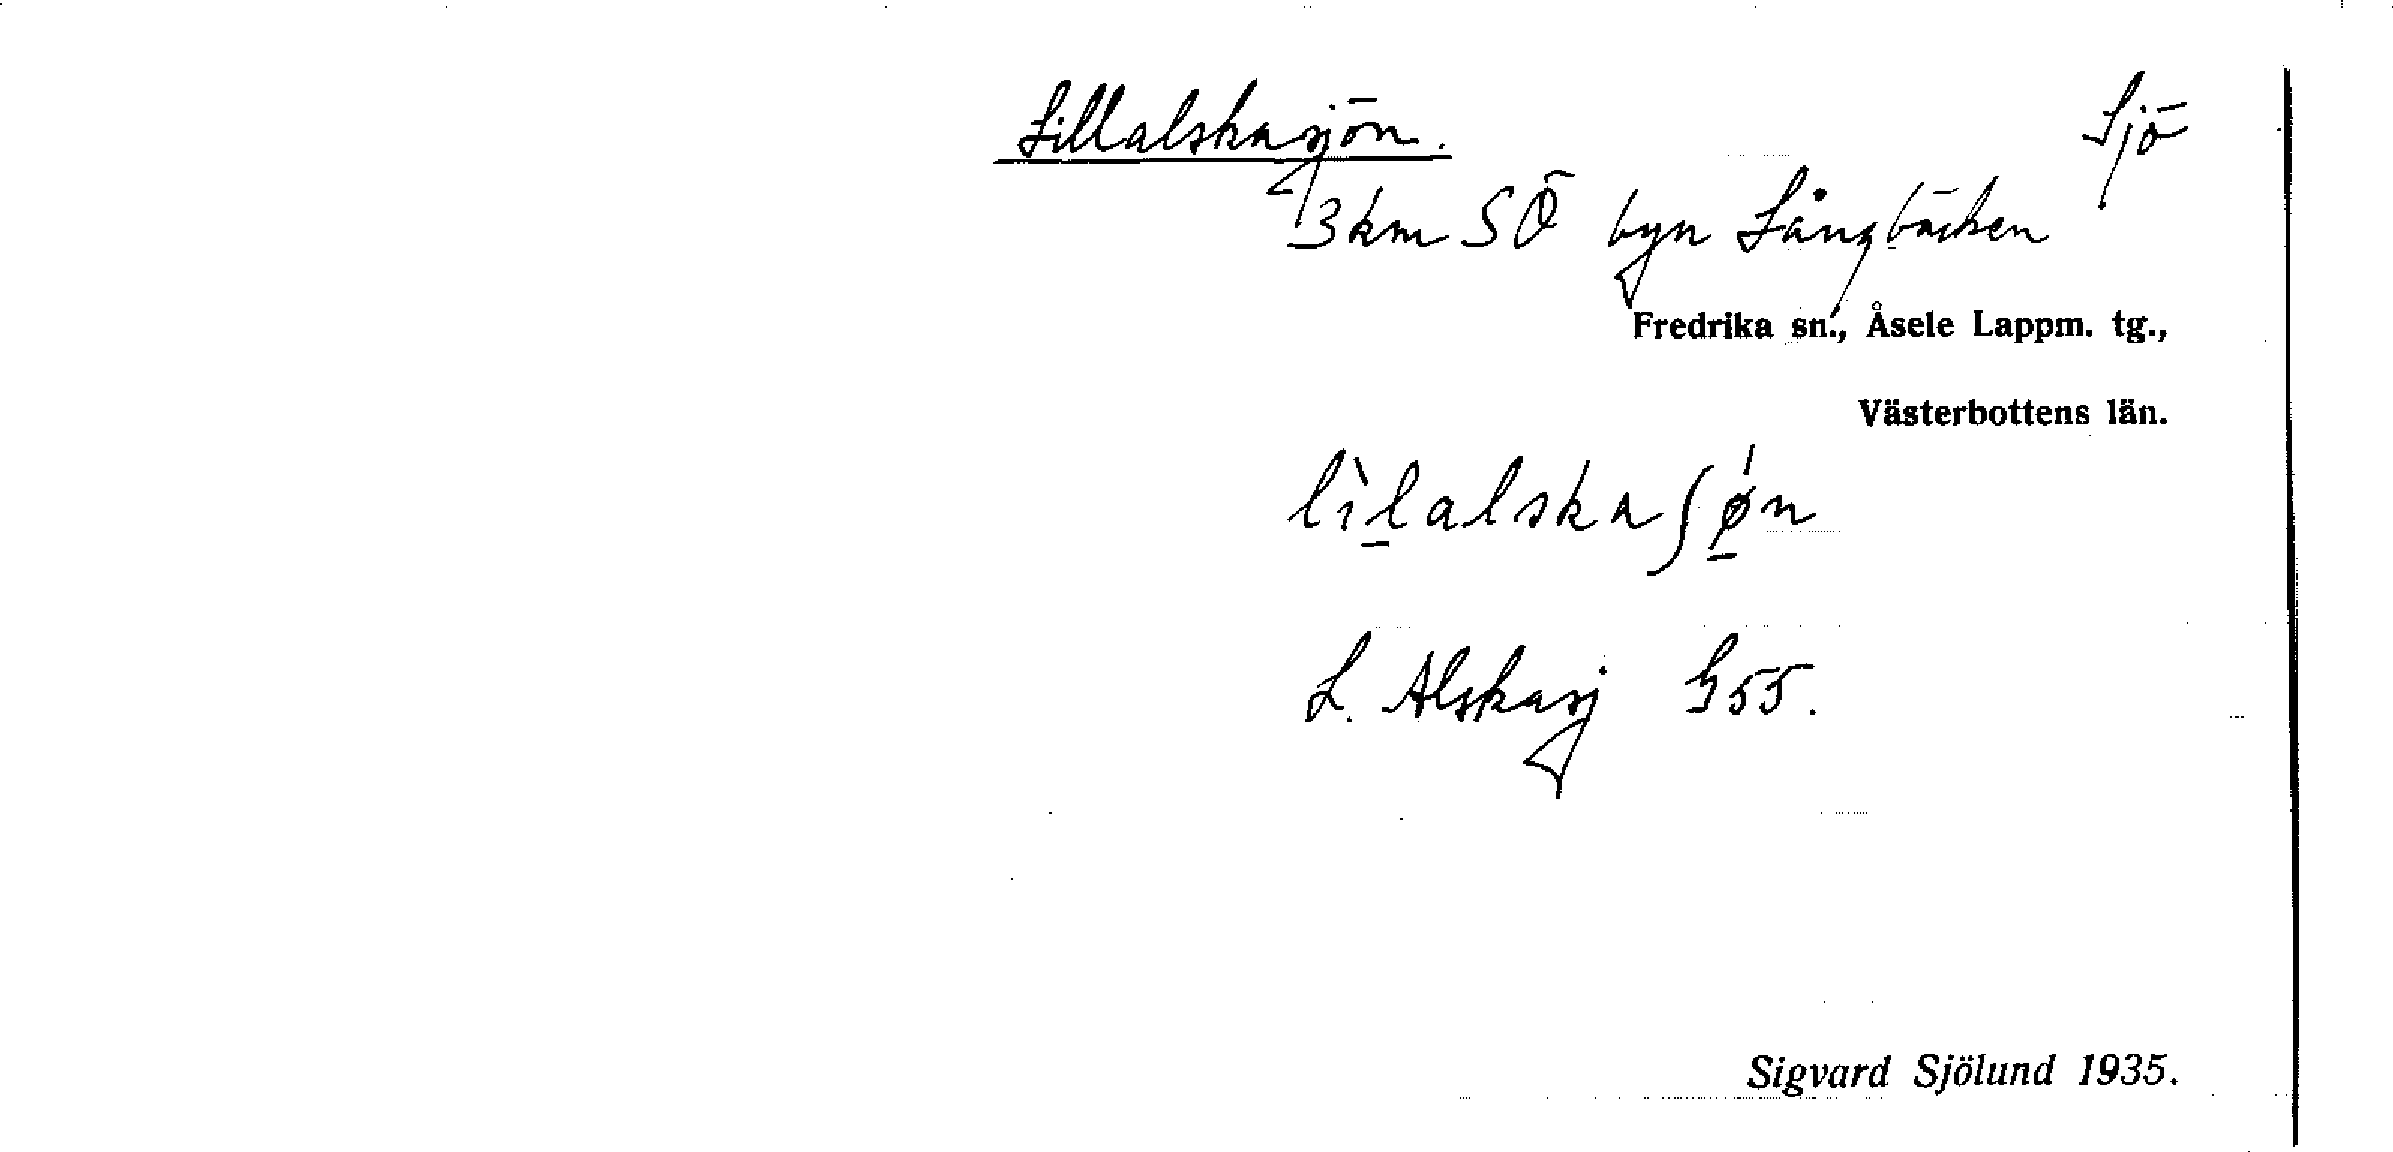 Lillalskasjön. Sjö
3 km SÖ byn Långbäcken
Fredrika sn., Åsele Lappm. tg.,
Västerbottens län.
lìl̠alskaʃǿ̠n
L. Alskasj G55.
Sigvard Sjölund 1935.